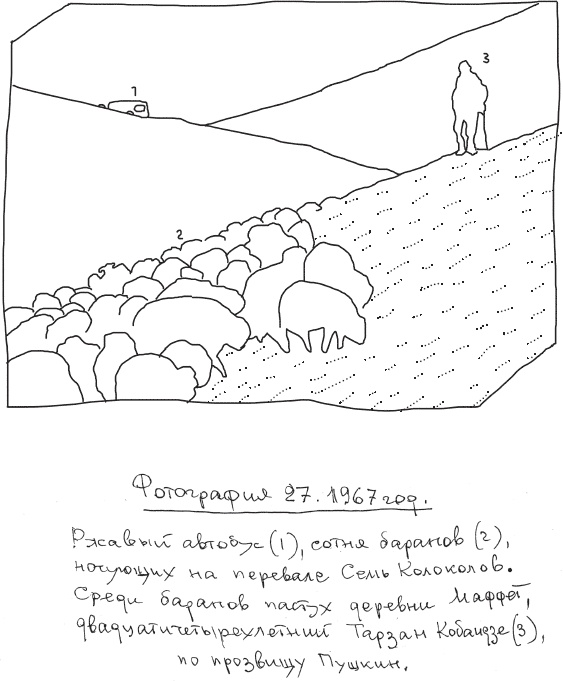 1
3
2
Фотография 27. 1967 год.
Ржавый автобус (1), сотня баранов (2),
ночующих на перевале Семь Колоколов.
Среди баранов пастух деревни Маффет,
двадцатичетырехлетний Тарзан Кобаидзе (3),
по прозвищу Пушкин.